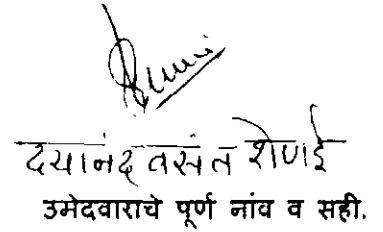 दयानंद वसंत शेणई
उमेदवाराचे पूर्ण नांव व सही.